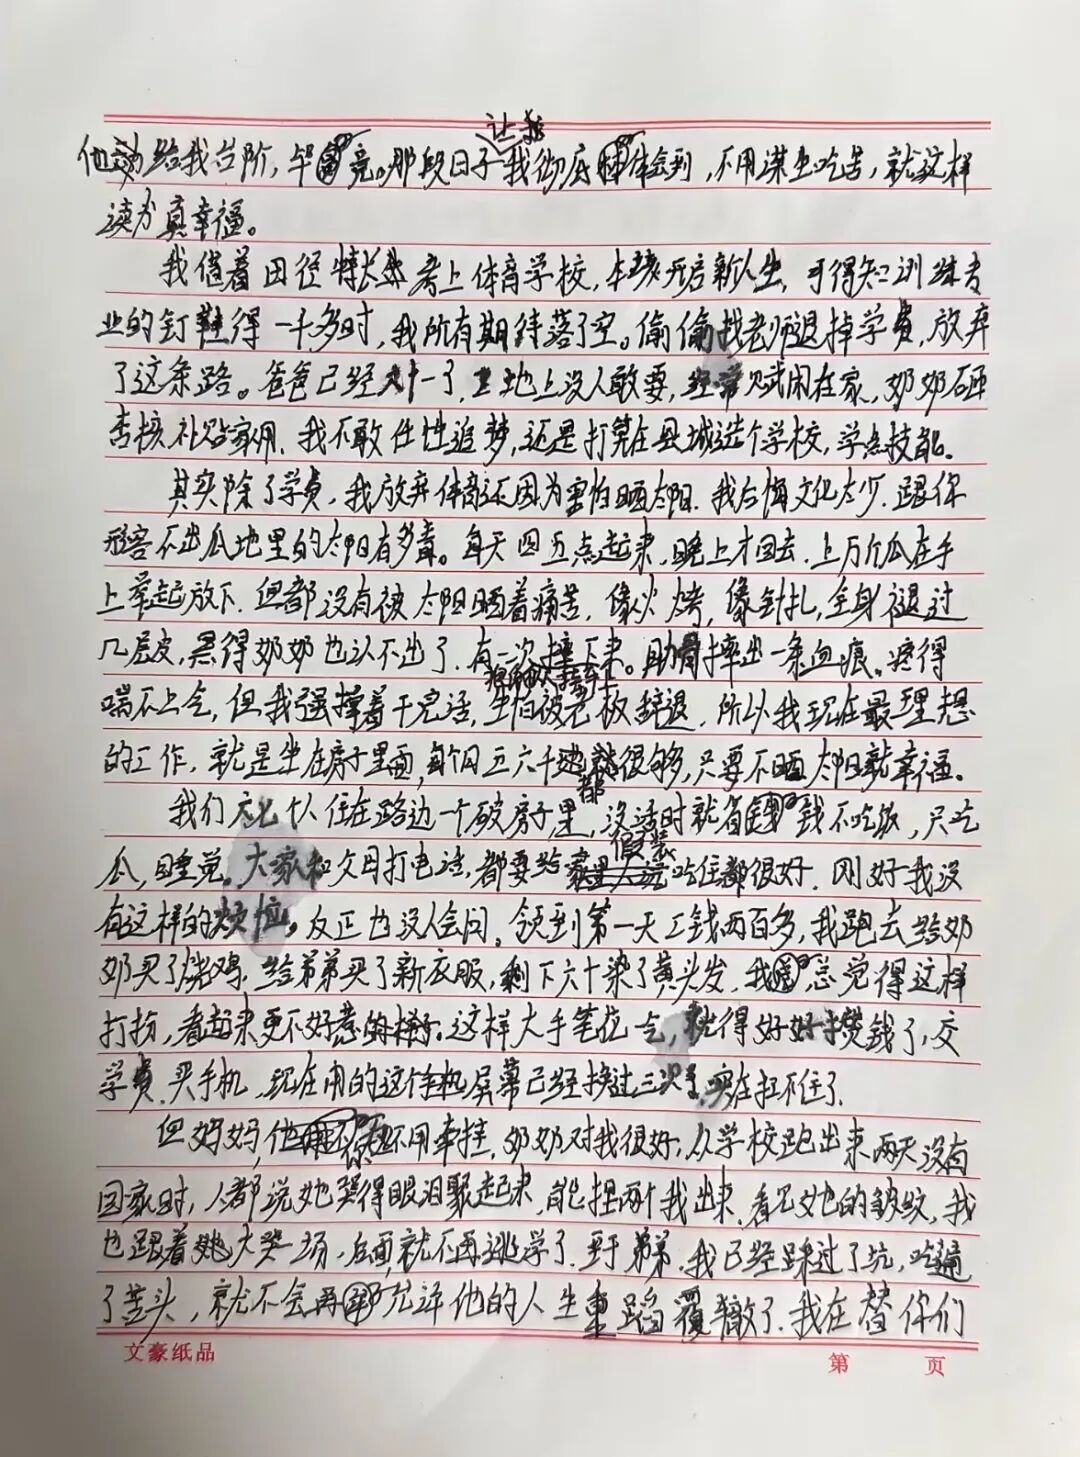 让我
他方给我台阶，毕竟。那段日子我彻底体会到，不用谋生吃苦，就这样
读书真幸福。
我借着田径特长生考上体育学校，本该开启新人生，可得知训练专
业的钉鞋得一千多时，我所有期待落了空。偷偷找老师退掉学费，放弃
了这条路。爸爸已经六十一了，工地上没人敢要，经常赋闲在家，奶奶砸
杏核补贴家用，我不敢任性追梦，还是打算在县城选个学校，学点技能。
其实除了学费，我放弃体育还因为害怕晒太阳。我后悔文化太少，跟你
形容不出瓜地里的太阳有多毒。每天四五点起来，晚上才回去，上万个瓜在手
上举起放下，但都没有被太阳晒着痛苦，像火烤，像针扎，全身褪过
几层皮，黑得奶奶也认不出了，有一次摔下来。肋骨摔出一条血痕。疼得
喘不上气，但我强撑着干完活，生怕被老板辞退，所以我现在最理想
的工作，就是坐在房子里面，每个月五六千都很够，只要不晒太阳就幸福。
我们个人住在路边一个破房子里，没活时就省钱不吃饭，只吃
瓜，睡觉。大家和父母打电话，都要假装吃住都很好，刚好我没
有这样的烦恼，反正也没人会问。领到第一天工钱两百多，我跑去给奶
奶买了烧鸡，给弟弟买了新衣服，剩下六十染了黄头发，我总觉得这样
打扮，看起来更不好惹的样子。这样大手笔拉一气，就得好好攒钱了，交
学费，买手机，现在用的这个手机屏幕已经换过三次了，实在扛不住了。
但妈妈，你不用牵挂，奶奶对我很好，从学校跑出来两天没有
回家时，人都说她哭得眼泪聚起来，能捏两个我出来，看见她的皱纹，我
也跟着她大哭一场，后面就不再逃学了，至于弟弟，我已经踩过了坑，吃遍
了苦头，就不会再允许他的人生重蹈覆辙了，我在替你们
文豪纸品
第 页